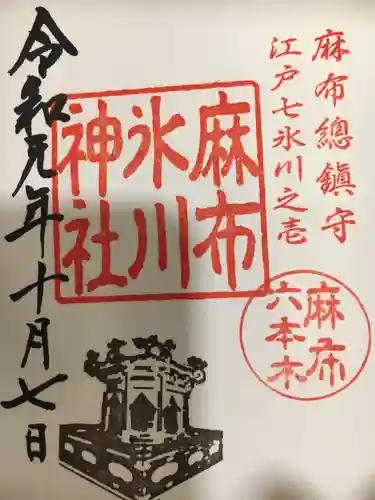 麻布總鎮守
江戸七氷川之壱
麻布
氷川
神社
麻布
六本木
令和元年十月七日